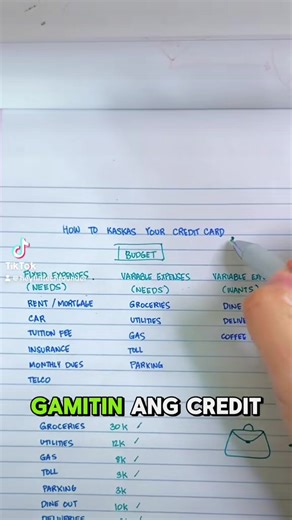 HOW TO KASKAS YOUR CREDIT CARD
BUDGET
TikTok
FIXED EXPENSES VARIABLE EXPENSES VARIABLE
(NEEDS) (NEEDS) (WANTS)
RENT / MORTGAGE GROCERIES DINE
CAR UTILITIES
TUITION FEE GAS COFFEE
INSURANCE TOLL
MONTHLY DUES PARKING
TELCO
GAMITIN ANG CREDIT
GROCERIES 30K ✓
UTILITIES 12K ✓
GAS 8K ✓
TOLL 3K ✓
PARKING 3K
DINE OUT 10K ✓